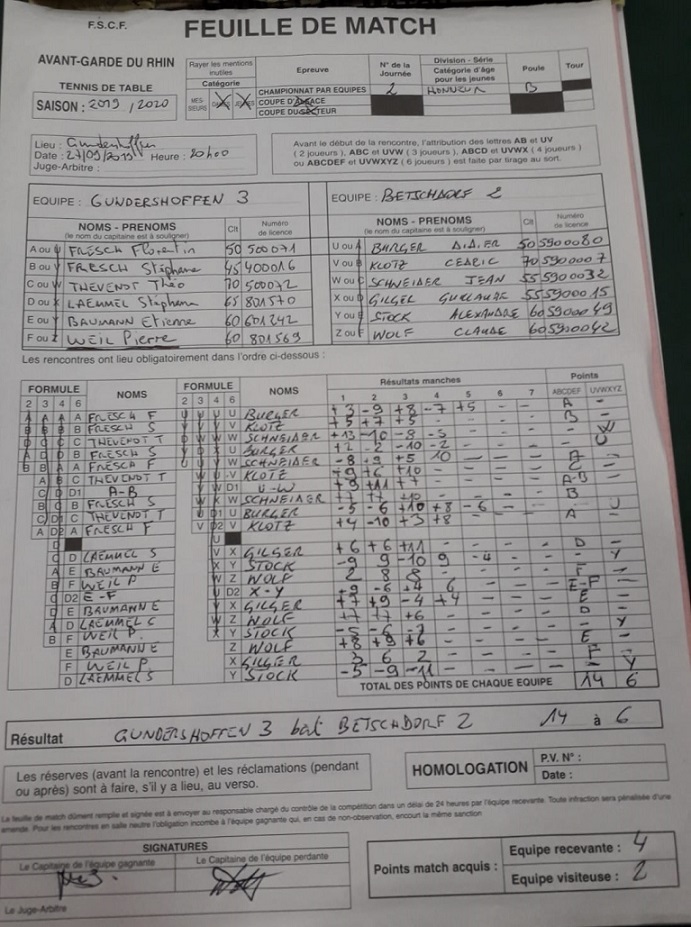 F.S.C.F. FEUILLE DE MATCH
AVANT-GARDE DU RHIN
TENNIS DE TABLE
SAISON : 2019 / 2020
Rayer les mentions inutiles
Catégorie
Epreuve
N° de la Journée
Division - Série
Catégorie d'âge pour les jeunes
Poule
Tour
CHAMPIONNAT PAR EQUIPES 2 HONNEUR B
COUPE D'ALSACE
COUPE DU SECTEUR
Lieu : Gundershoffen
Date : 27/09/2019 Heure : 20h00
Juge-Arbitre :
Avant le début de la rencontre, l'attribution des lettres AB et UV
( 2 joueurs ), ABC et UVW ( 3 joueurs ), ABCD et UVWX ( 4 joueurs )
ou ABCDEF et UVWXYZ ( 6 joueurs ) est faite par tirage au sort.
EQUIPE : GUNDERSHOFFEN 3
NOMS - PRENOMS (le nom du capitaine est à souligner) Clt Numéro de licence
A ou U FRESCH Florentin 50 500071
B ou V FRESCH Stéphane 45 400016
C ou W THEVENOT Théo 70 500072
D ou X LAEMMEL Stéphane 65 801570
E ou Y BAUMANN Etienne 60 601242
F ou Z WEIL Pierre 60 801569
EQUIPE : BETSCHDORF 2
NOMS - PRENOMS (le nom du capitaine est à souligner) Clt Numéro de licence
U ou A BURGER DIDIER 50 5900080
V ou B KLOTZ CEDRIC 70 5900007
W ou C SCHNEIDER JEAN 55 5900032
X ou D GILGER GUILAUME 55 5900015
Y ou E STOCK ALEXANDRE 60 5900049
Z ou F WOLF CLAUDE 60 5900042
Les rencontres ont lieu obligatoirement dans l'ordre ci-dessous :
FORMULE NOMS FORMULE NOMS Résultats manches Points
2 3 4 6 2 3 4 6 1 2 3 4 5 6 7 ABCDEF UVWXYZ
A FRESCH F U BURGER +3 -9 +8 -7 +5 - - A -
B FRESCH S V KLOTZ +5 +7 +5 - - - - B -
C THEVENOT T W SCHNEIDER +13 -10 -8 -5 - - - - W
B FRESCH S U BURGER +2 -2 -10 -2 - - - - U
A FRESCH F W SCHNEIDER -8 +9 +5 10 - - - A -
C THEVENOT T V KLOTZ +9 +6 +10 - - - - C -
D1 A-B W D1 U-W +9 +11 +7 - - - - A-B -
B FRESCH S W SCHNEIDER +7 +7 +10 - - - - B -
C THEVENOT T U BURGER -5 -6 +10 +8 -6 - - - U
A FRESCH F V KLOTZ +4 -10 +3 +8 - - - A -
D LAEMMEL S X GILGER +6 +6 +11 - - - - D -
E BAUMANN E Y STOCK -9 9 -10 9 -4 - - - Y
F WEIL P Z WOLF 2 8 8 - - - - F -
D2 E-F D2 X-Y -9 -6 +4 6 - - - E-F -
E BAUMANN E X GILGER +7 +9 -4 +4 - - - E -
D LAEMMEL S Z WOLF +7 +7 +6 - - - - D -
F WEIL P. Y STOCK -5 -6 -3 - - - - - Y
E BAUMANN E Z WOLF +8 +9 +6 - - - - E -
F WEIL P. X GILGER 3 6 2 - - - - F -
D LAEMMEL S Y STOCK -5 -9 -11 - - - - - Y
TOTAL DES POINTS DE CHAQUE EQUIPE 14 6
Résultat GUNDERSHOFFEN 3 bat BETSCHDORF 2 14 à 6
Les réserves (avant la rencontre) et les réclamations (pendant
ou après) sont à faire, s'il y a lieu, au verso.
HOMOLOGATION
P.V. N° :
Date :
La feuille de match dûment remplie et signée est à envoyer au responsable chargé du contrôle de la compétition dans un délai de 24 heures par l'équipe recevante. Toute infraction sera pénalisée d'une
amende. Pour les rencontres en salle neutre l'obligation incombe à l'équipe gagnante qui, en cas de non-observation, encourt la même sanction
SIGNATURES
Le Capitaine de l'équipe gagnante
Le Capitaine de l'équipe perdante
Le Juge-Arbitre
Points match acquis :
Equipe recevante : 4
Equipe visiteuse : 2